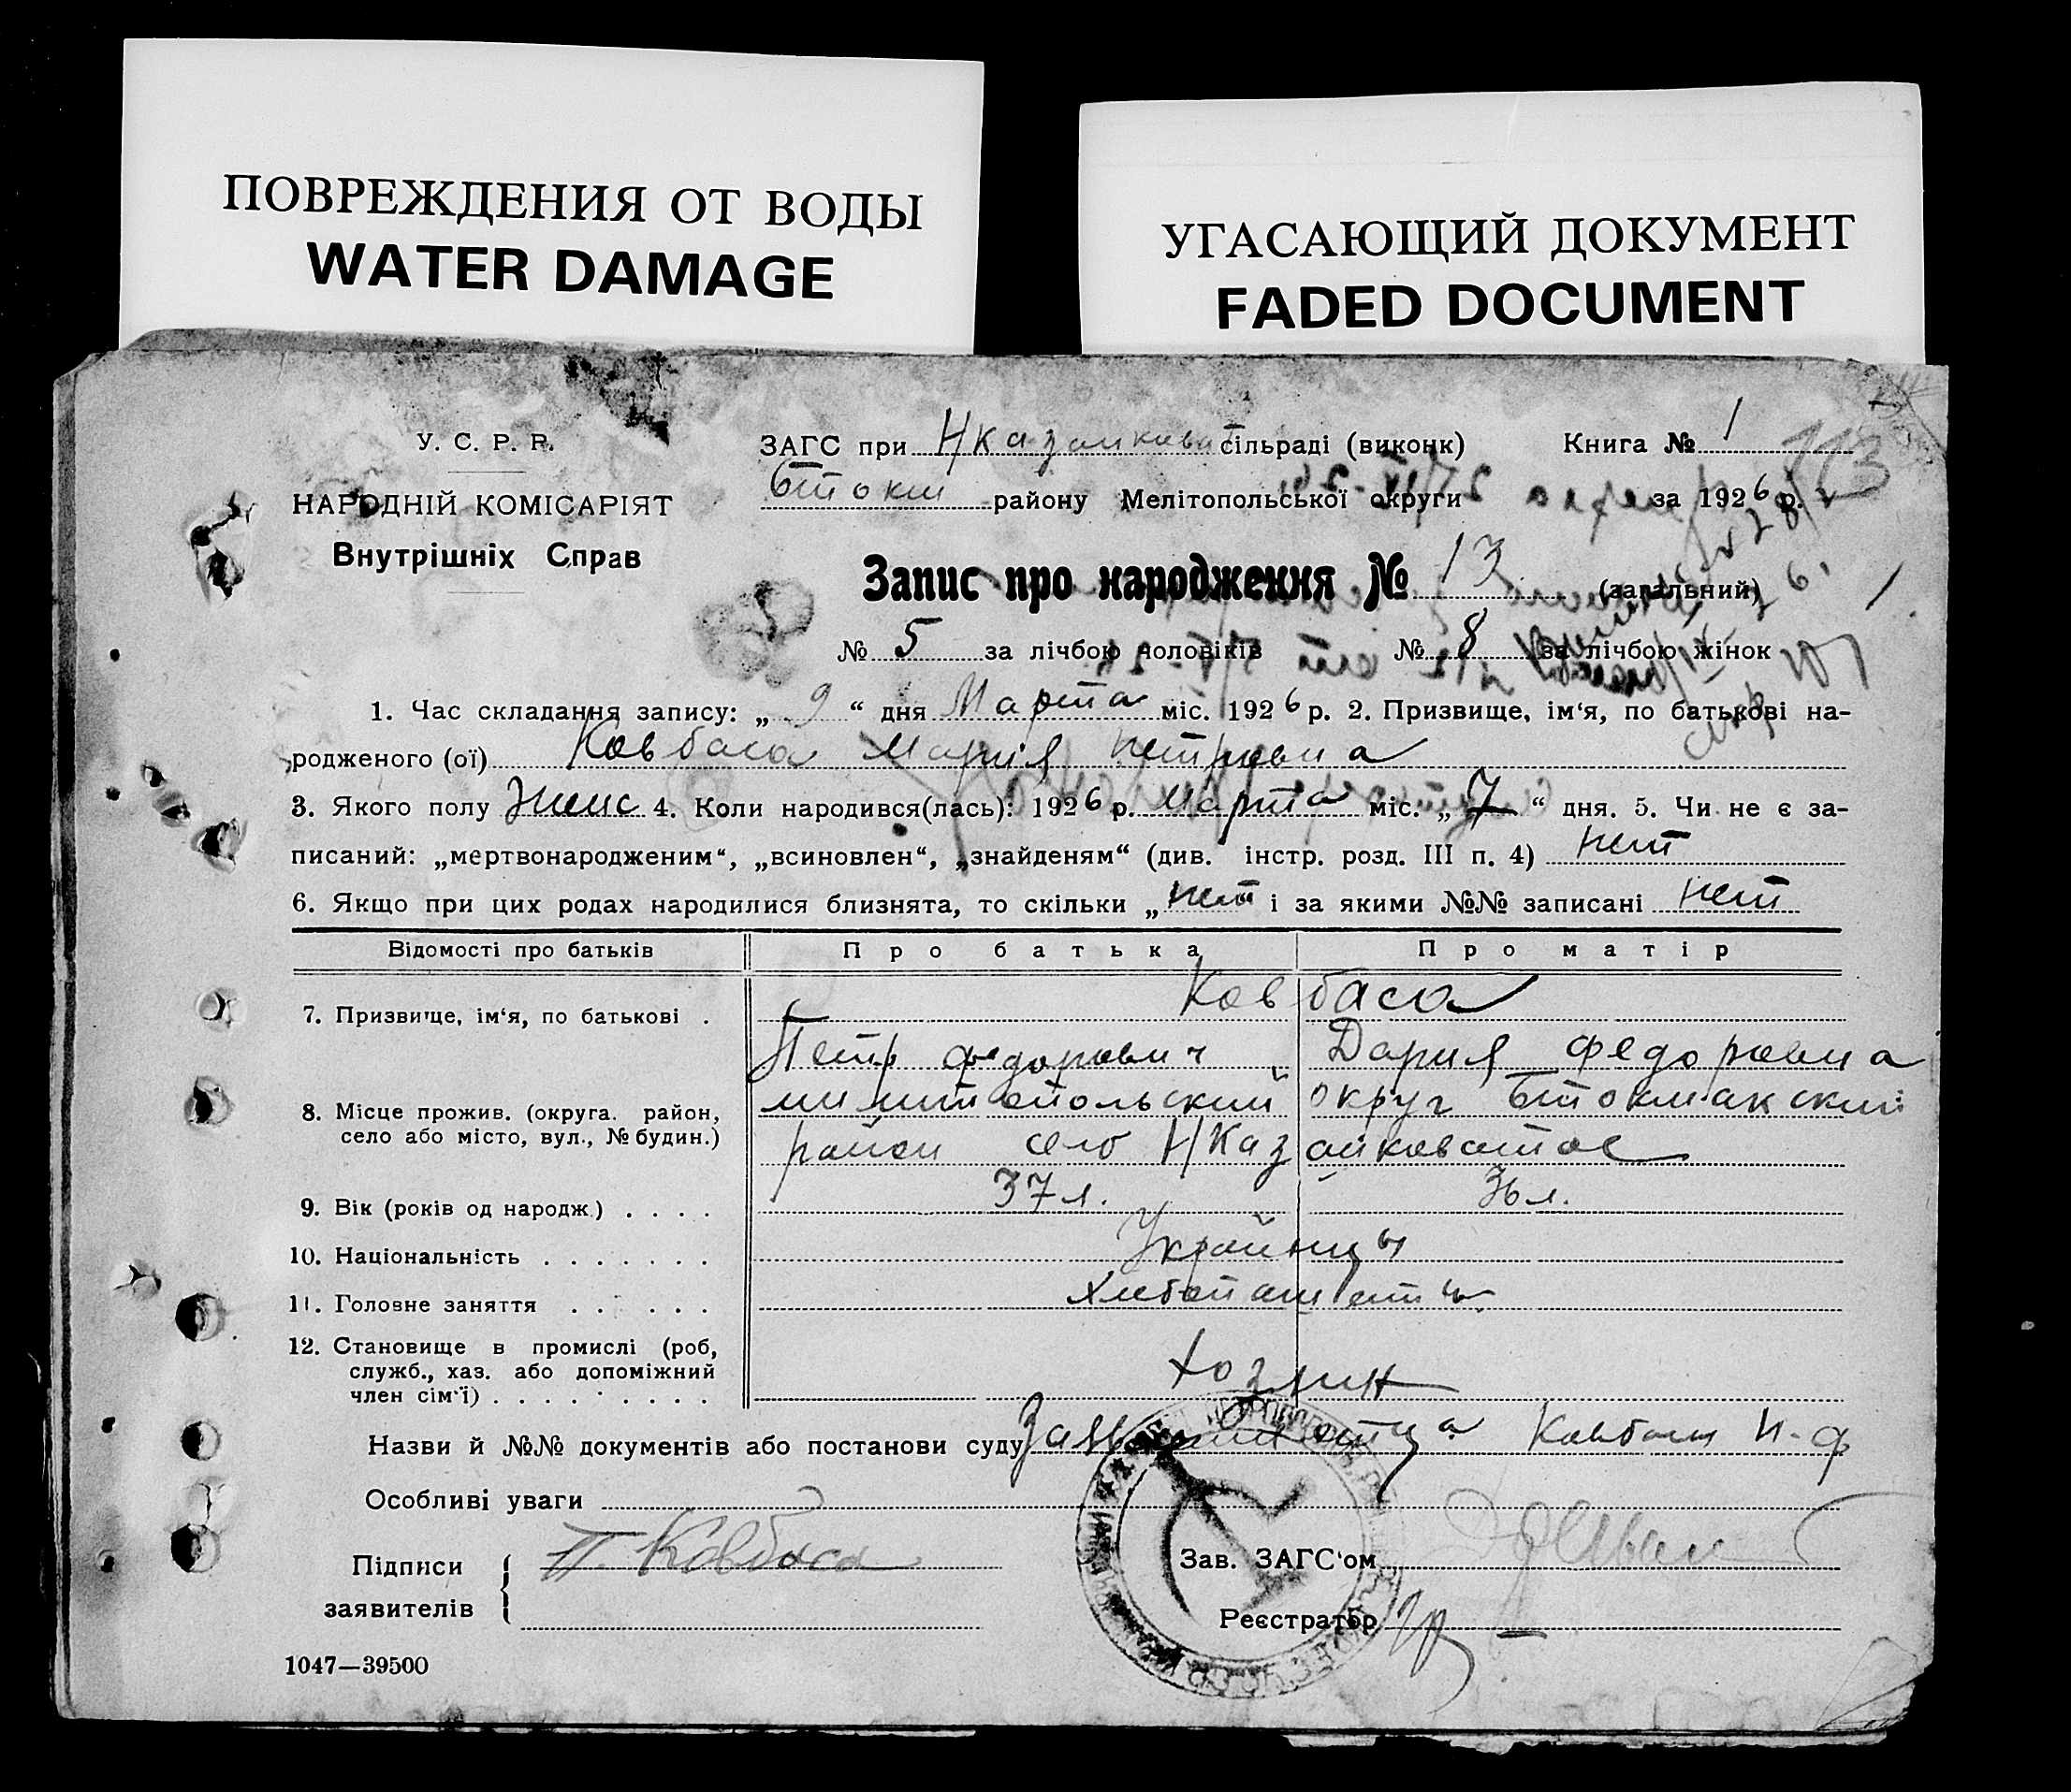 ПОВРЕЖДЕНИЯ ОТ ВОДЫ
WATER DAMAGE
УГАСАЮЩИЙ ДОКУМЕНТ
FADED DOCUMENT
У. С. Р. Р.
НАРОДНІЙ КОМІСАРІЯТ
Внутрішніх Справ
ЗАГС при Н/Казанковат сільраді (виконк) Книга № 1
113
Бток район району Мелітопольської округи за 1926 р.
Запис про народження № 13 (загальний)
№ 5 за лічбою чоловіків № 8 за лічбою жінок
1. Час складання запису: „ 9 “ дня Марта міс. 1926 р. 2. Призвище, ім‘я, по батькові на-
родженого (ої) Ковбаса Мария Петровна
3. Якого полу Женс 4. Коли народився(лась): 1926 р. Марта міс. „ 7 “ дня. 5. Чи не є за-
писаний: „мертвонародженим“, „всиновлен“, „знайденям“ (див. інстр. розд. III п. 4) нет
6. Якщо при цих родах народилися близнята, то скільки „ нет і за якими №№ записані нет
Відомості про батьків Про батька Про матір
Ковбаса
7. Призвище, ім‘я, по батькові . Петр Федорович Дария Федоровна
8. Місце прожив. (округа. район, село або місто, вул., № будин.) мелитопольский округ Бтокмакский
район село Н/Казанковатое
9. Вік (років од народж.) . . . . 37 л. 36 л.
10. Національність . . . . . . . Украйнцы
11. Головне заняття . . . . . . Хлебопашеств
12. Становище в промислі (роб, служб., хаз. або допоміжний член сім‘ї) . . . . . . . . . Хозяин
Назви й №№ документів або постанови суду Заявление отца Ковбасы П. Ф
Особливі уваги
Підписи
заявителів
П. Ковбаса
Зав. ЗАГС‘ом
Реєстратор
1047—39500